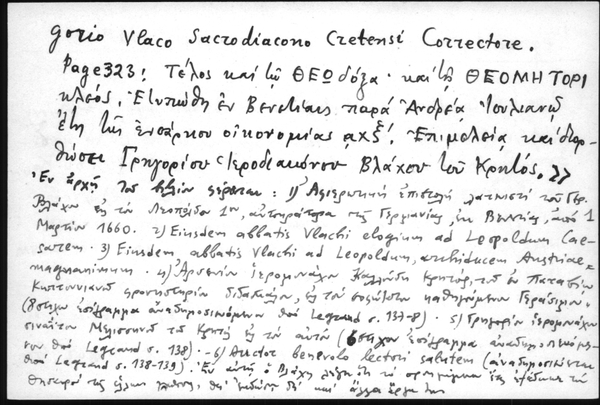 gorio Vlaco Sacrodiacono Cretensi Correctore.
Page 323: Τέλος καὶ τῷ ΘΕΩ δόξα · καὶ τῇ ΘΕΟΜΗΤΟΡΙ
κλέος. Ἐτυπώθη ἐν Βενετίαις παρὰ Ἀνδρέᾳ Ἰουλιανῷ
ἔτη τῆς ἐνσάρκου οἰκονομίας αχξ΄. Ἐπιμελείᾳ καὶ διορ-
θώσει Γρηγορίου Ἱεροδιακόνου Βλάχου τοῦ Κρητός.»
Ἐν ἀρχῇ τοῦ βιβλίου φέρεται: 1) Ἀφιερωτικὴ ἐπιστολὴ λατινιστὶ τοῦ Γερ.
Βλάχου εἰς τὸν Λεοπόλδον 1ον, αὐτοκράτορα τῆς Γερμανίας, ἐκ Βενετίας, ἀπὸ 1
Μαρτίου 1660. 2) Eiusdem abbatis Vlachi elogium ad Leopoldum Cae-
sarem. 3) Eiusdem, abbatis Vlachi ad Leopoldum, archiducem Austriae
magnanimum. 4) Ἀρσενίου Ἱερομονάχου Καλλούδη Κρητός, τοῦ ἐν Παταβίῳ
Κωττουνιανοῦ φροντιστηρίου διδασκάλου, εἰς τὸν καθηγούμενον Γεράσιμον.
(8στιχον ἐπίγραμμα ἀναδημοσιευόμενον ὑπὸ Legrand σ. 137-8) · 5) Γρηγορίου ἱερομονάχου
σιναΐτου Μελισσηνοῦ τοῦ Κρητὸς εἰς τὸν αὐτὸν (στιχον ἐπίγραμμα ἀναδημοσιευόμε-
νον ὑπὸ Legrand σ. 138) · 6) Auctor benevolo lectori salutem (ἀναδημοσιεύεται
ὑπὸ Legrand σ. 138-139). Ἐν αὐτῇ ὁ Βλάχος λέγει ὅτι
θησαυρὸ τῆς καὶ ἄλλα ἔργα του